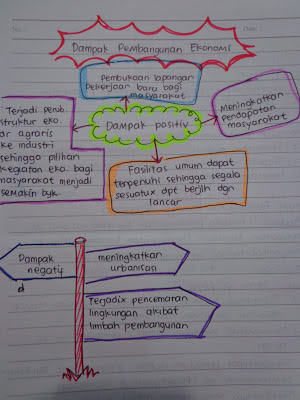 Dampak Pembangunan Ekonomi
Pembukaan lapangan
pekerjaan baru bagi
masyarakat
Meningkatkan
pendapatan
masyarakat
Dampak positiv
Terjadi perub.
struktur eko.
dr agraris
ke industri
sehingga pilihan
kegiatan eko. bagi
masyarakat menjadi
semakin byk.
Fasilitas umum dapat
terpenuhi sehingga segala
sesuatux dpt berjln dgn
lancar
Dampak
negatif
meningkatkan
urbanisasi
Terjadix pencemaran
lingkungan akibat
limbah pembangunan